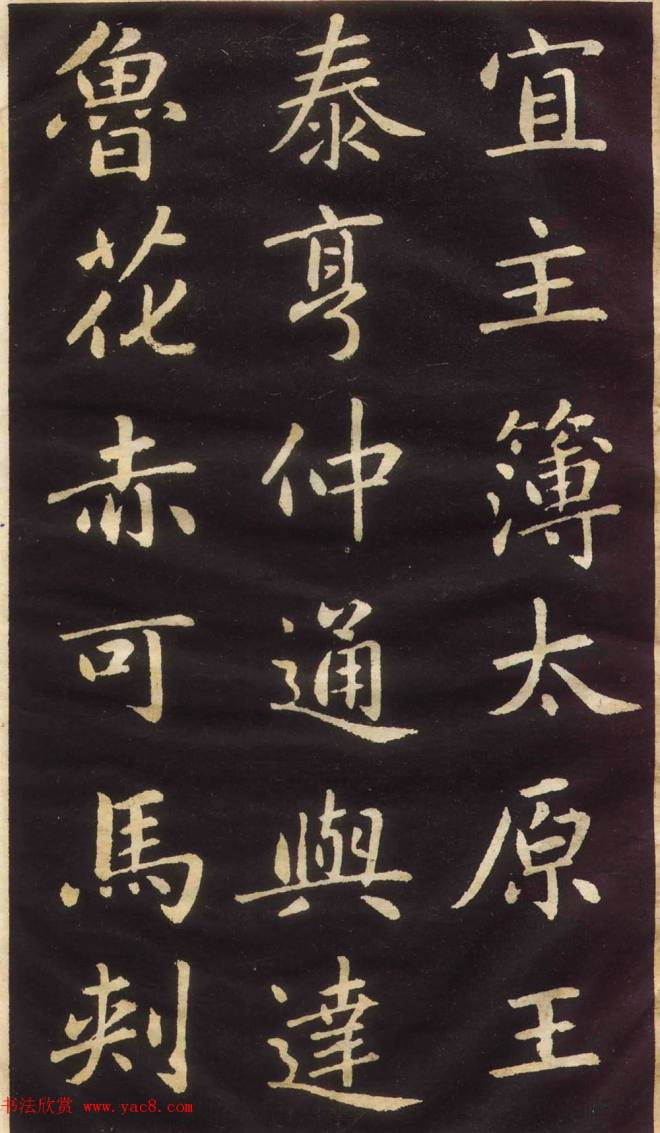 宜主簿太原王
泰亨仲通與達
魯花赤可馬刺
书法欣赏 www.yac8.com